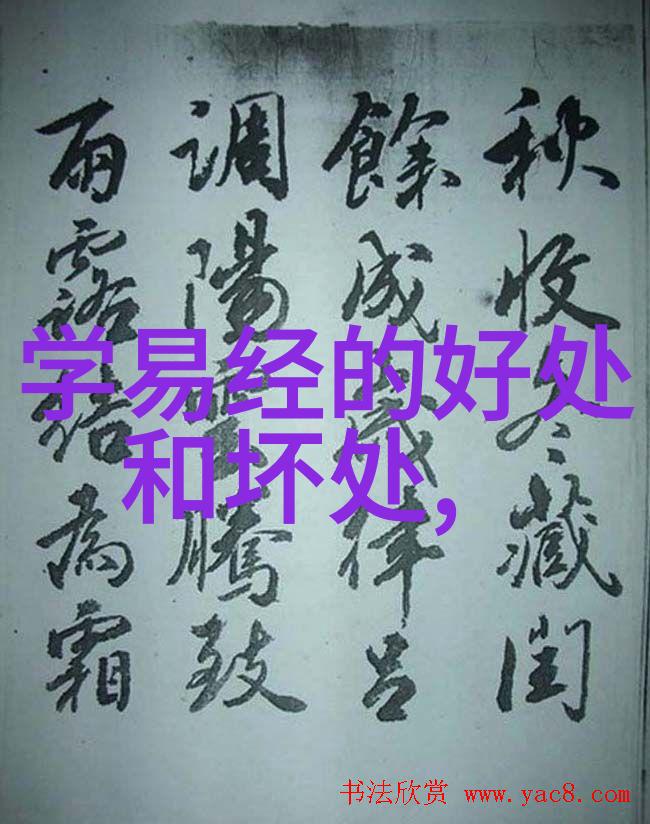 秋收冬藏閏
餘成歲律呂
調陽雲騰致
雨露結為霜
学易经的好处
和坏处,
书法欣赏 www.yac8.com